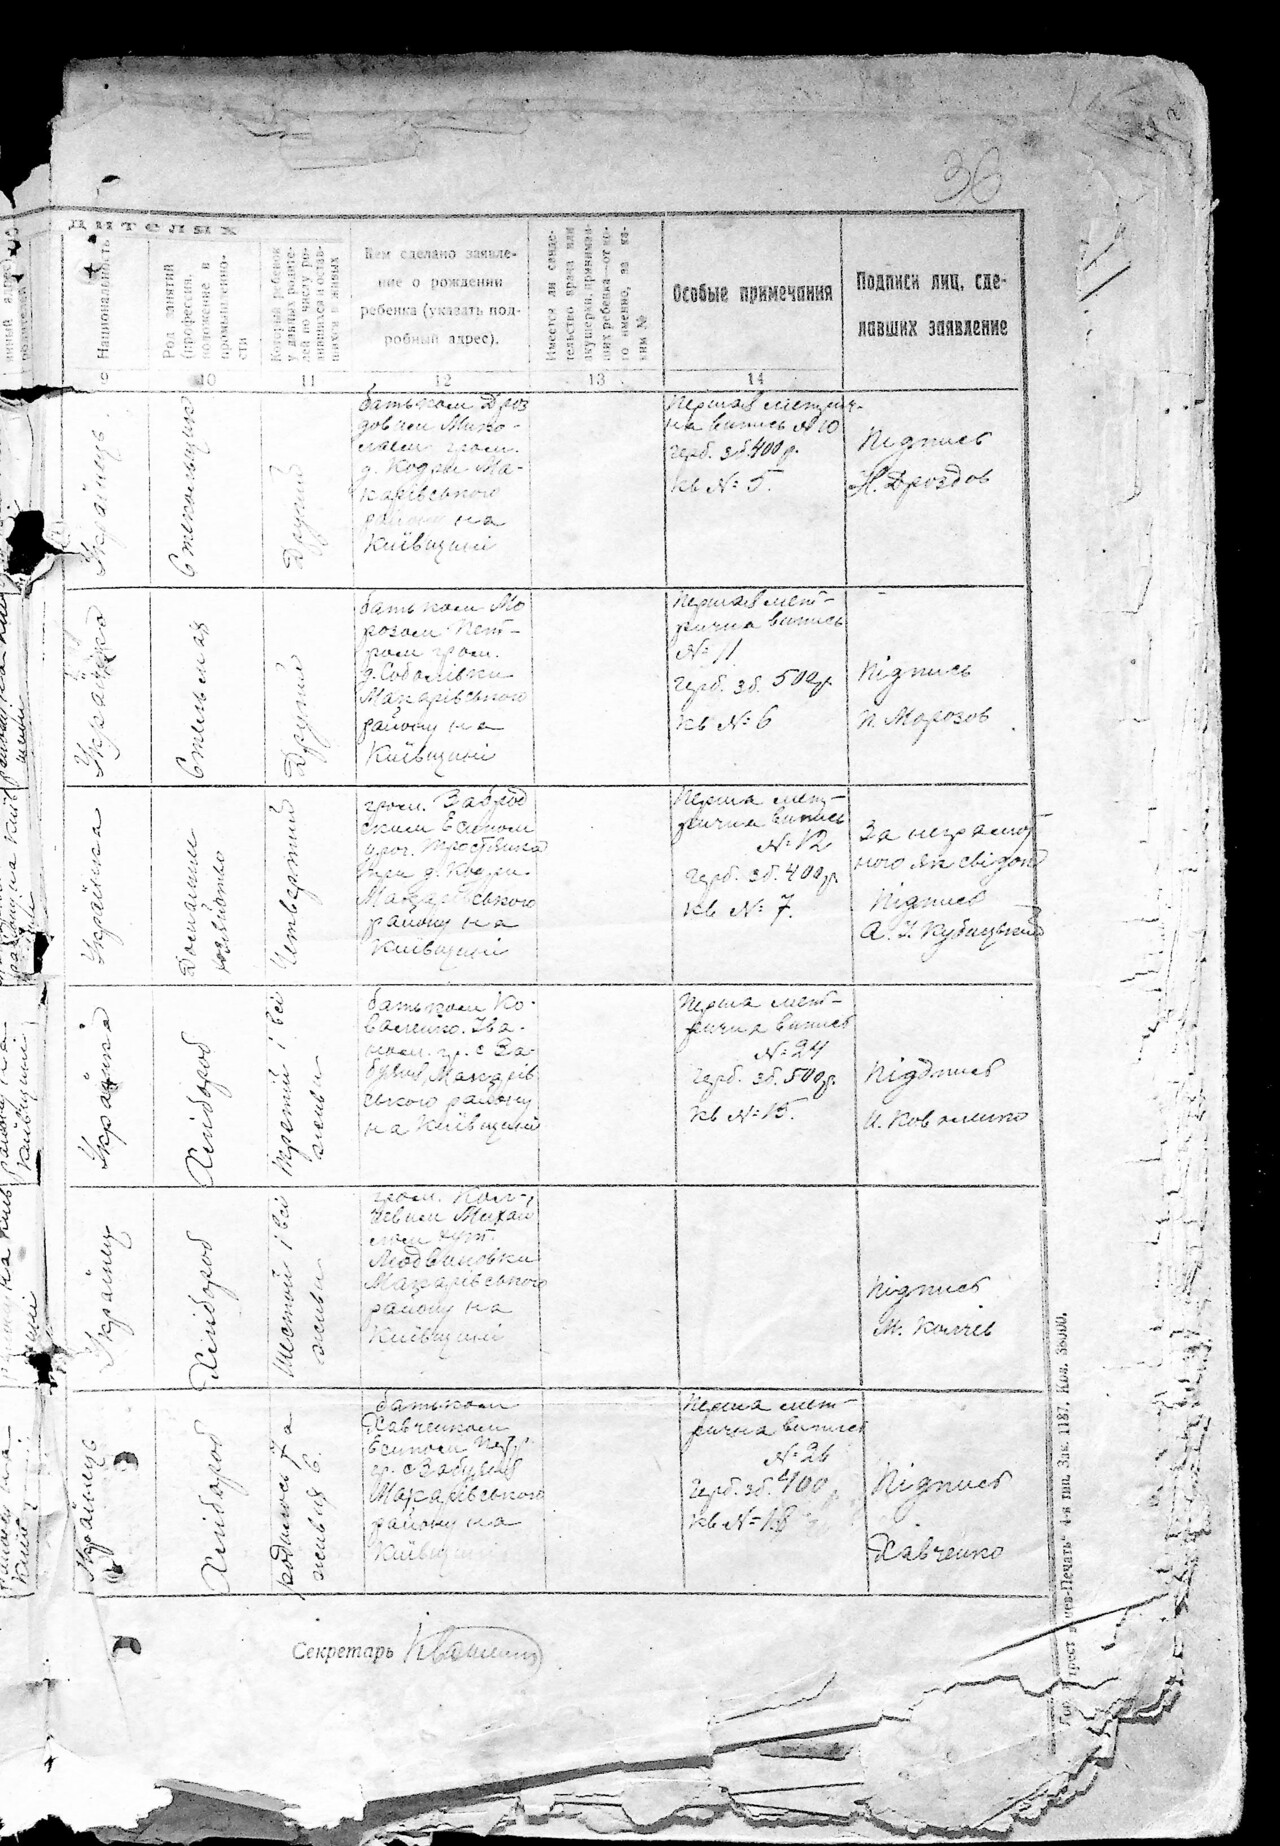 36
дителях
Национальность
Род занятий
(профессия,
положение в
промышленно-
сти
Который ребенок
у данных родите-
лей по числу ро-
дившихся и остав-
шихся в живых
Кем сделано заявле-
ние о рождении
ребенка (указать под-
робный адрес).
Имеется ли свиде-
тельство врача или
акушерки, принимав-
ших ребенка—от ко-
го именно, за ка-
ким №
Особые примечания
Подписи лиц, сде-
лавших заявление
9
10
11
12
13
14
Українць
Стекольщик
Другий
батьком Дроз
довим Мико-
лаєм гром.
д. Кодри Ма-
карівського
району на
Київщині
Перша метрич-
на випись № 10
герб. зб. 400 р.
кв № 5.
Підпись
Н. Дроздов
Українка
Стельмах
Другий
батьком Мо
розом Пет-
ром гром.
д. Соболівки
Макарівського
району на
Київщині
Перша мет-
рична випись
№ 11
герб. зб. 500 р.
кв № 6
Підпись
П. Морозов
Українка
Домашнє
хозяйство
Четвертий
гром. Заброд
ским Есипом
уроч. Тростянка
при д. Кодри
Макарівського
району на
Київщині
Перша мет-
рична випись
№ 12
герб. зб. 400 р.
кв № 7.
За неграмот
ного як свідок
Підпись
А. І. Кубицький
Українка
Хлібороб
Третій і всі
живи
батьком Ко-
валенко Іва-
ном гр. с За-
буяня Макарів
ського району
на Київщині
Перша мет-
рична випись
№ 24
герб. зб. 500 р.
кв № 15.
Підпись
И. Коваленко
Українц
Хлібороб
Шестой і всі
живи
гром.
Михай
лом хут.
Людвиновки
Макарівського
району на
Київщині
Підпись
М.
Українць
Хлібороб
родилось 7 а
живия 6.
батьком
Хавченком
Есипом
гр. с Забуяня
Макарівського
району на
Київщині
Перша мет-
рична випись
№ 26
герб. зб. 400 р.
кв № 18
Підпись
Хавченко
Секретарь
4-я тип. Зак. 1187. Кол. 38000.